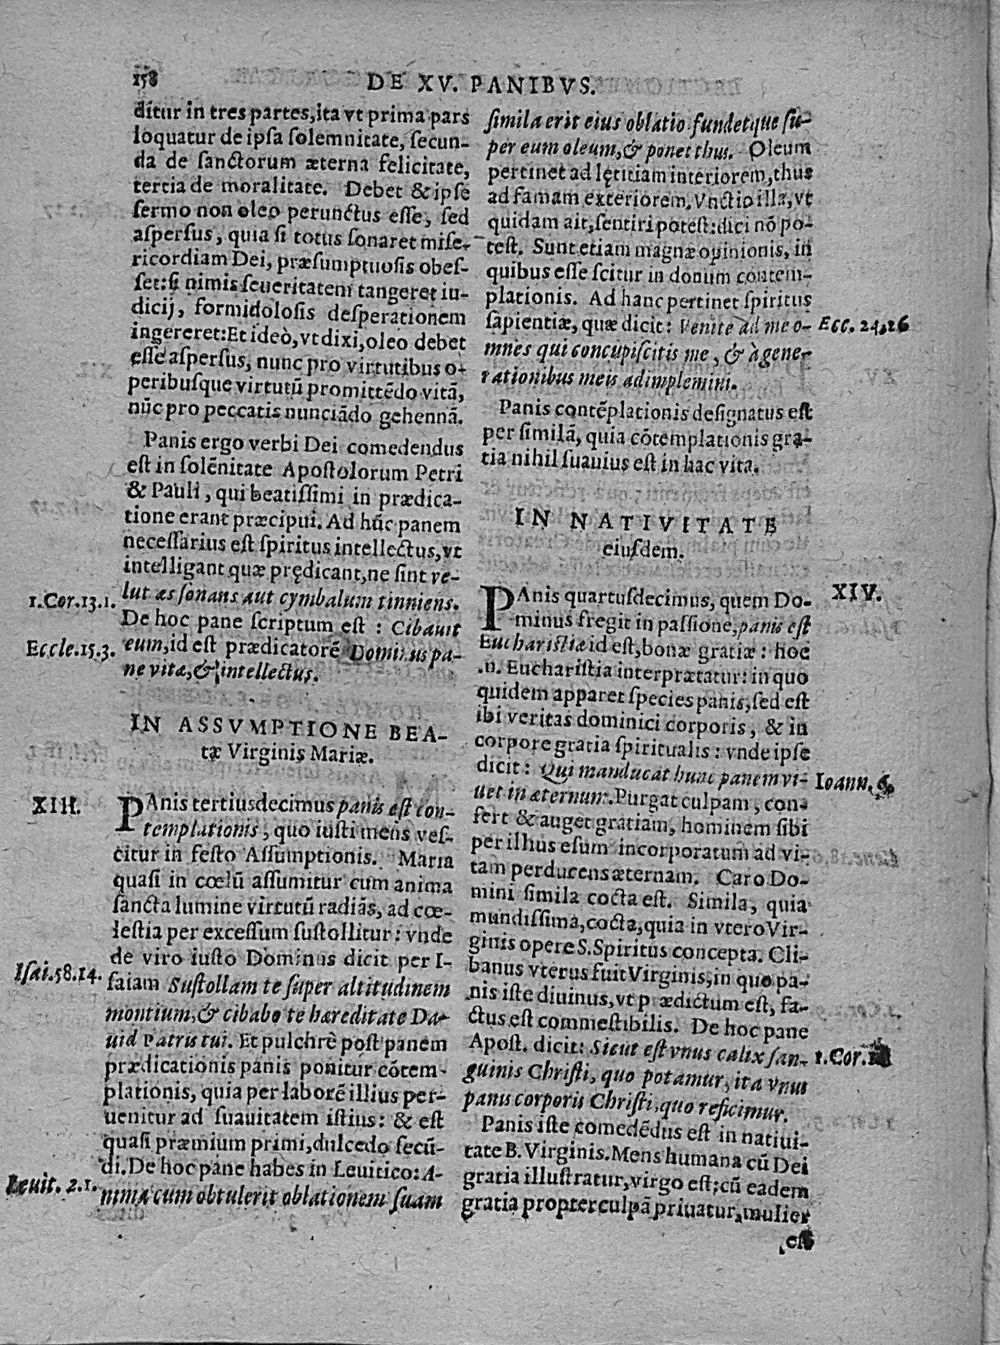 158
DE XV. PANIBVS.
ditur in tres partes, ita vt prima pars
loquatur de ipsa solemnitate, secun-
da de sanctorum æterna felicitate,
tertia de moralitate. Debet & ipse
sermo non oleo perunctus esse, sed
aspersus, quia si totus sonaret mise-
ricordiam Dei, præsumptuosis obes-
set: si nimis seueritatem tangeret iu-
dicij, formidolosis desperationem
ingereret: Et ideò, vt dixi, oleo debet
esse aspersus, nunc pro virtutibus o-
peribusque virtutū promittēdo vitā,
nūc pro peccatis nunciādo gehennā.
Panis ergo verbi Dei comedendus
est in solēnitate Apostolorum Petri
& Pauli, qui beatissimi in prædica-
tione erant præcipui. Ad hūc panem
necessarius est spiritus intellectus, vt
intelligant quæ prędicant, ne sint ve-
lut æs sonans aut cymbalum tinniens.
1. Cor. 13. 1.
De hoc pane scriptum est: Cibauit
eum, id est prædicatorē Dominus pa-
Eccle. 15. 3.
ne vitæ, & intellectus.
IN ASSVMPTIONE BEA-
tæ Virginis Mariæ.
XIII.
PAnis tertiusdecimus panis est con-
templationis, quo iusti mens ves-
citur in festo Assumptionis. Maria
quasi in cœlū assumitur cum anima
sancta lumine virtutū radiās, ad cœ-
lestia per excessum sustollitur: vnde
de viro iusto Dominus dicit per I-
Isai. 58. 14.
saiam Sustollam te super altitudinem
montium, & cibabo te hæreditate Da-
uid Patris tui. Et pulchrè post panem
prædicationis panis ponitur cōtem-
plationis, quia per laborē illius per-
uenitur ad suauitatem istius: & est
quasi præmium primi, dulcedo secū-
di. De hoc pane habes in Leuitico: A-
Leuit. 2. 1.
nima cum obtulerit oblationem suam
simila erit eius oblatio: fundetque su-
per eum oleum, & ponet thus. Oleum
pertinet ad lętitiam interiorem, thus
ad famam exteriorem. Vnctio illa, vt
quidam ait, sentiri potest: dici nō po-
test. Sunt etiam magnæ opinionis, in
quibus esse scitur in donum contem-
plationis. Ad hanc pertinet spiritus
sapientiæ, quæ dicit: Venite ad me o-
Ecc. 24. 26
mnes qui concupiscitis me, & à gene-
rationibus meis adimplemini.
Panis contēplationis designatus est
per similā, quia cōtemplationis gra-
tia nihil suauius est in hac vita.
IN NATIVITATE
eiusdem.
XIV.
PAnis quartusdecimus, quem Do-
minus fregit in passione, panis est
Eucharistiæ id est, bonæ gratiæ: hoc
.n. Eucharistia interprætatur: in quo
quidem apparet species panis, sed est
ibi veritas dominici corporis, & in
corpore gratia spiritualis: vnde ipse
dicit: Qui manducat hunc panem vi-
Ioann. 6.
uet in æternum. Purgat culpam, con-
fert & auget gratiam, hominem sibi
per illius esum incorporatum ad vi-
tam perducens æternam. Caro Do-
mini simila cocta est. Simila, quia
mundissima, cocta, quia in vtero Vir-
ginis opere S. Spiritus concepta. Cli-
banus vterus fuit Virginis, in quo pa-
nis iste diuinus, vt prædictum est, fa-
ctus est commestibilis. De hoc pane
Apost. dicit: Sicut est vnus calix san-
1. Cor.
guinis Christi, quo potamur, ita vnus
panis corporis Christi, quo reficimur.
Panis iste comedēdus est in natiui-
tate B. Virginis. Mens humana cū Dei
gratia illustratur, virgo est; cū eadem
gratia propter culpā priuatur, mulier
est